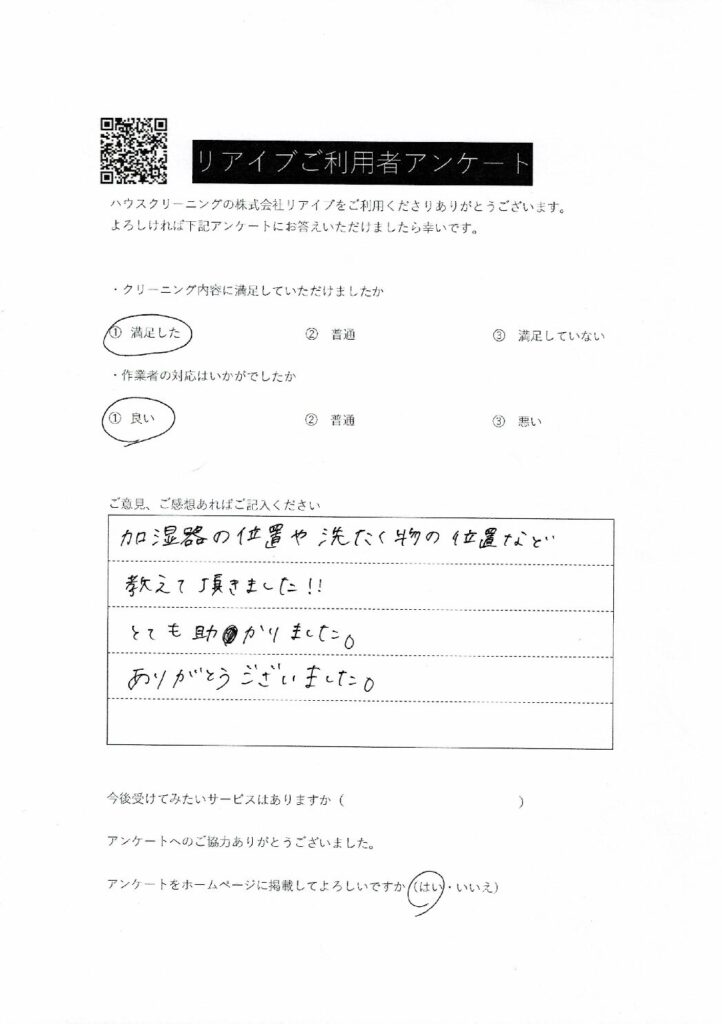 リアイブご利用者アンケート
ハウスクリーニングの株式会社リアイブをご利用くださりありがとうございます。
よろしければ下記アンケートにお答えいただけましたら幸いです。
・クリーニング内容に満足していただけましたか
① 満足した ② 普通 ③ 満足していない
・作業者の対応はいかがでしたか
① 良い ② 普通 ③ 悪い
ご意見、ご感想あればご記入ください
加湿器の位置や洗たく物の位置など
教えて頂きました!!
とても助かりました。
ありがとうございました。
今後受けてみたいサービスはありますか ( )
アンケートへのご協力ありがとうございました。
アンケートをホームページに掲載してよろしいですか (はい・いいえ)